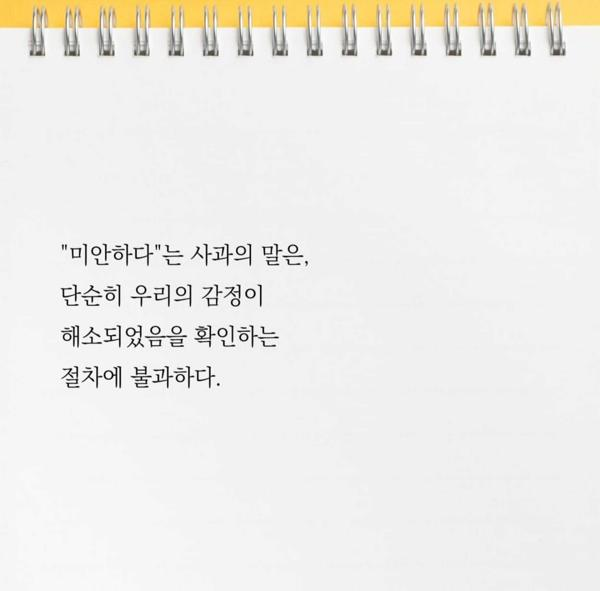 "미안하다"는 사과의 말은,
단순히 우리의 감정이
해소되었음을 확인하는
절차에 불과하다.